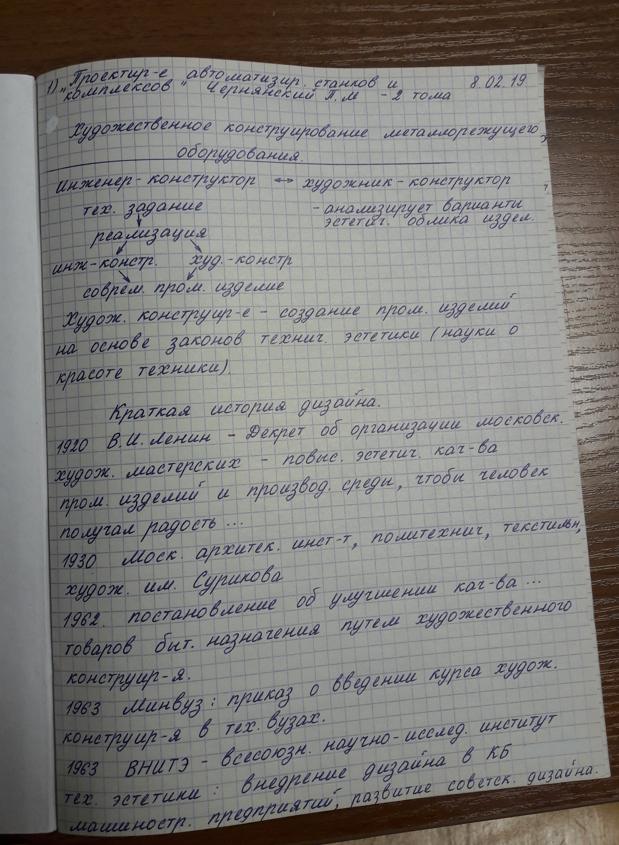 1) „Проектир-е автоматизир. станков и 8.02.19.
комплексов" Чернянский П.М - 2 тома
Художественное конструирование металлорежущего
оборудования.
инженер-конструктор ↔ художник-конструктор
тех. задание - анализирует варианты
реализация эстетич. облика издел.
инж-констр. худ.-констр
соврем. пром. изделие
Худож. конструир-е - создание пром. изделий
на основе законов технич. эстетики (науки о
красоте техники).
Краткая история дизайна.
1920 В.И. Ленин - Декрет об организации московск.
худож. мастерских - повыс. эстетич. кач-ва
пром. изделий и производ. среды, чтобы человек
получал радость ...
1930 Моск. архитек. инст-т, политехнич, текстильн,
худож. им. Сурикова
1962 постановление об улучшении кач-ва ...
товаров быт. назначения путем художественного
конструир-я.
1963 Минвуз: приказ о введении курса худож.
конструир-я в тех. вузах.
1963 ВНИТЭ - всесоюзн. научно-исслед. институт
тех. эстетики: внедрение дизайна в КБ
машиностр. предприятий, развитие советск. дизайна.